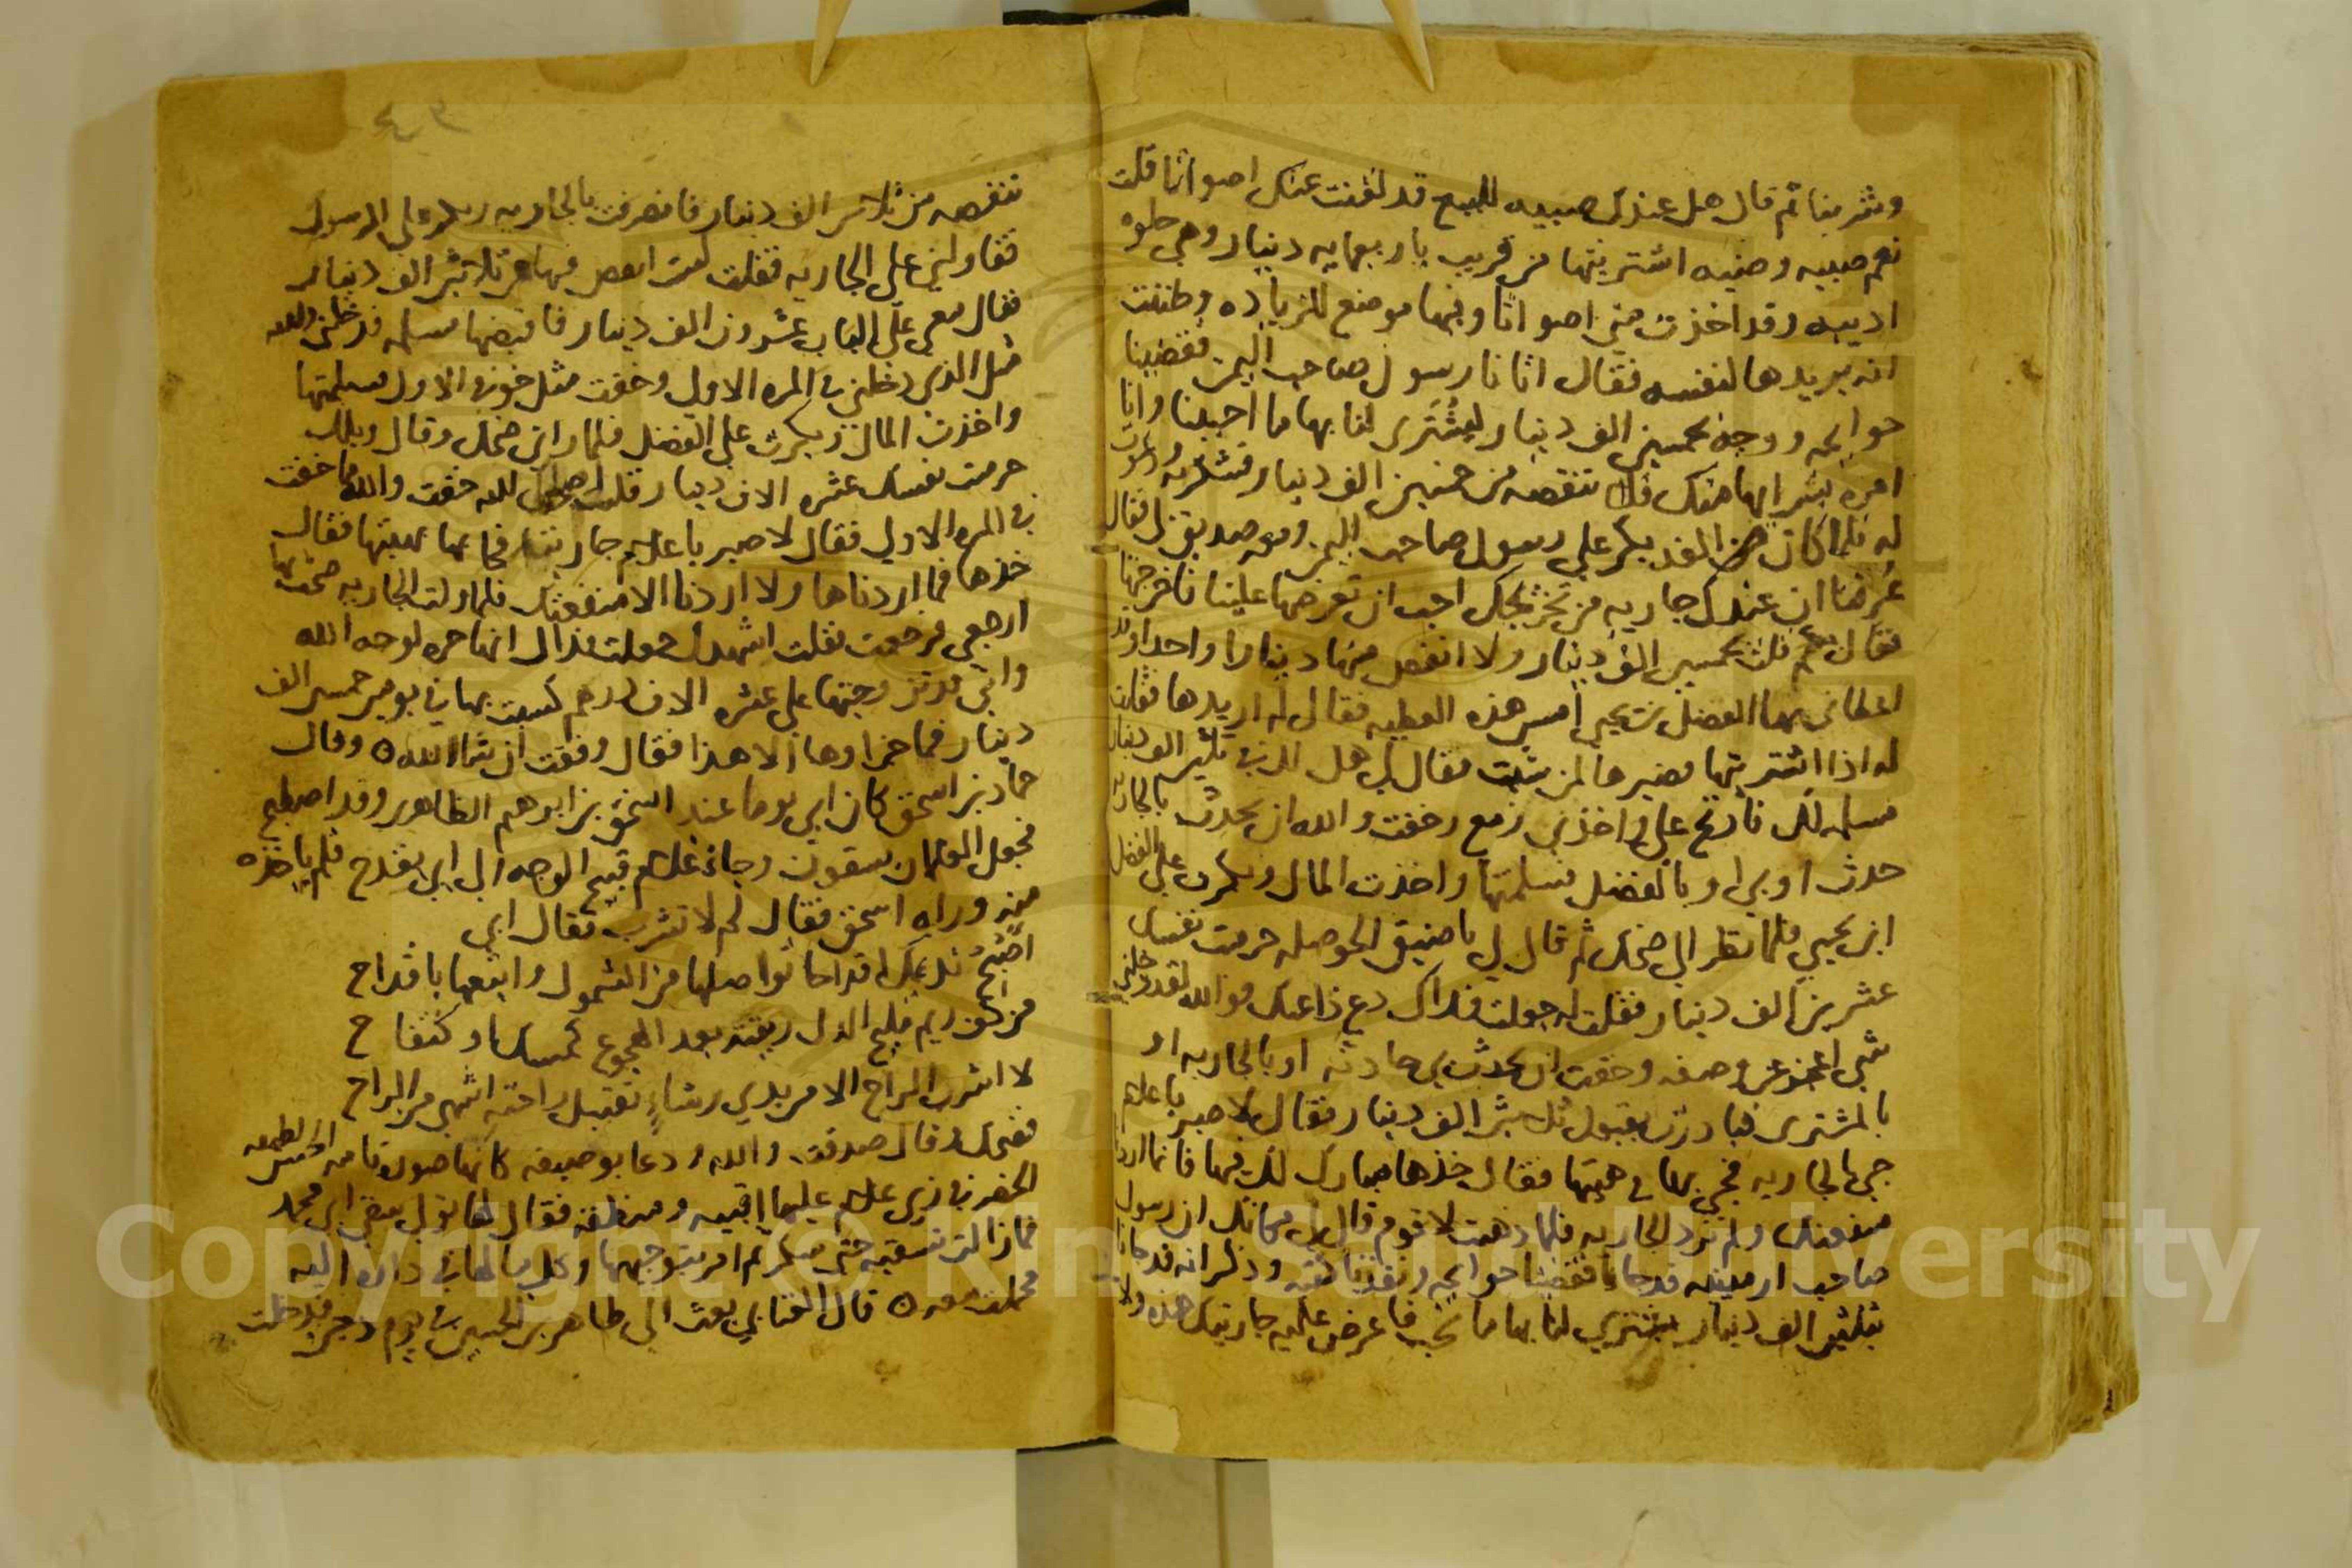 وشربنا ثم قال هل عندك صبيه للبيع قد لقنت عنك اصواتا قلت
نعم صبيه وضيه اشتريتها من قريب باربعمايه دينار وهي حلوه
اديبه وقد اخذت مني اصواتا وفيها موضع للزياده وظننت
انه يريدها لنفسه فقال اتانا رسول صاحب اليمن فقضينا
حوايجه ووجه بخمسين الف دينار ليشترى لنا بها ما احببنا وانا
امره بشرايها منك فلا تنقصه من خمسين الف دينار فشكرته ودعوت
له فلما كان من الغد بكر علي رسول صاحب اليمن ومعه صديق لي فقال
عرفنا ان عندك جاريه من تخريجك احب ان تعرضها علينا فاخرجتها
فقال بكم قلت بخمسين الف دينار ولا انقص منها دينارا واحدا وقد
اعطاني بها الفضل بن يحيى امس هذه العطيه فقال له اريدها فقلت
له اذا اشتريتها فصيرها لمن شئت فقال لي هل لك في ثلثين الف دينار
مسلمه لك فارتج علي واخذني زمع وخفت والله ان يحدث بالجاريه
حدث او بي او بالفضل فسلمتها واخذت المال وبكرت على الفضل
ابن يحيى فلما نظر الي ضحك ثم قال لي يا ضيق الحوصله حرمت نفسك
عشرين الف دينار فقلت له جعلت فداك دع ذا عنك فوالله لقد دخلني
شي اعجز عن وصفه وخفت ان يحدث بي حادثه او بالجاريه او
بالمشترى فبادرت بقبول ثلثين الف دينار فقال لا ضير يا غلام
جي بالجاريه فجي بها في هيتها فقال خذها مبارك لك فيها فانما اردنا
منفعتك ولم نرد الجاريه فلما ذهبت لاقوم قال لي مكانك ان رسول
صاحب ارمينيه قد جانا فقضينا حوايجه ونفذنا كتبه وذكر انه قد جانا
بثلثين الف دينار يشترى لنا بها ما نحب فاعرض عليه جاريتك هذه ولا
تنقصه من ثلاثين الف دينار فانصرفت بالجاريه وبكر علي الرسول
فقاولني على الجاريه فقلت لست انقص فيها من ثلاثين الف دينار
فقال معي على الباب عشرون الف دينار فاقبضها مسلمه فدخلني والله
مثل الذي دخلني في المره الاولى وخفت مثل خوفي الاول فسلمتها
واخذت المال وبكرت على الفضل فلما راني ضحك وقال ويلك
حرمت نفسك عشره الاف دينار قلت اصلحك الله خفت والله ما خفت
في المره الاولى فقال لا ضير يا غلام جاريته فجا بها بهيتها فقال
خذها فما اردناها ولا اردنا الا منفعتك فلما ولت الجاريه صحت بها
ارجعي فرجعت فقلت اشهدك جعلت فداك انها حره لوجه الله
واني قد تزوجتها على عشره الاف درهم كسبت بها في يومين خمسين الف
دينار فما جزاوها الا هذا فقال وفقت ان شا الله ٥ وقال
حماد بن اسحق كان ابي يوما عند اسحق بن ابرهيم الطاهري وقد اصطبح
فجعل الغلمان يسقون وجاء غلام قبيح الوجه الى ابي بقدح فلم ياخذه
منه وراه اسحق فقال لم لا تشرب فقال ابي
اصبح نديمك اقداحا تواصلها من الشمول واتبعها باقداح
من كف ريم مليح الدل ريقته بعد الهجوع كمسك او كتفاح
لا اشرب الراح الا من يدي رشاءٍ تقبيل راحته اشهى من الراح
فضحك وقال صدقت والله ودعا بوصيفه كانها صوره تامه الحسن لطيفه
الخصر في زي غلام عليها اقبيه ومنطقه فقال لها تولي سقي ابي محمد
فما زالت تسقيه حتى سكر ثم امر بتوجيهها وكل ما لها في داره اليه
فحملت معه ٥ قال العتابي بعث الي طاهر بن الحسين في يوم دجن فدخلت